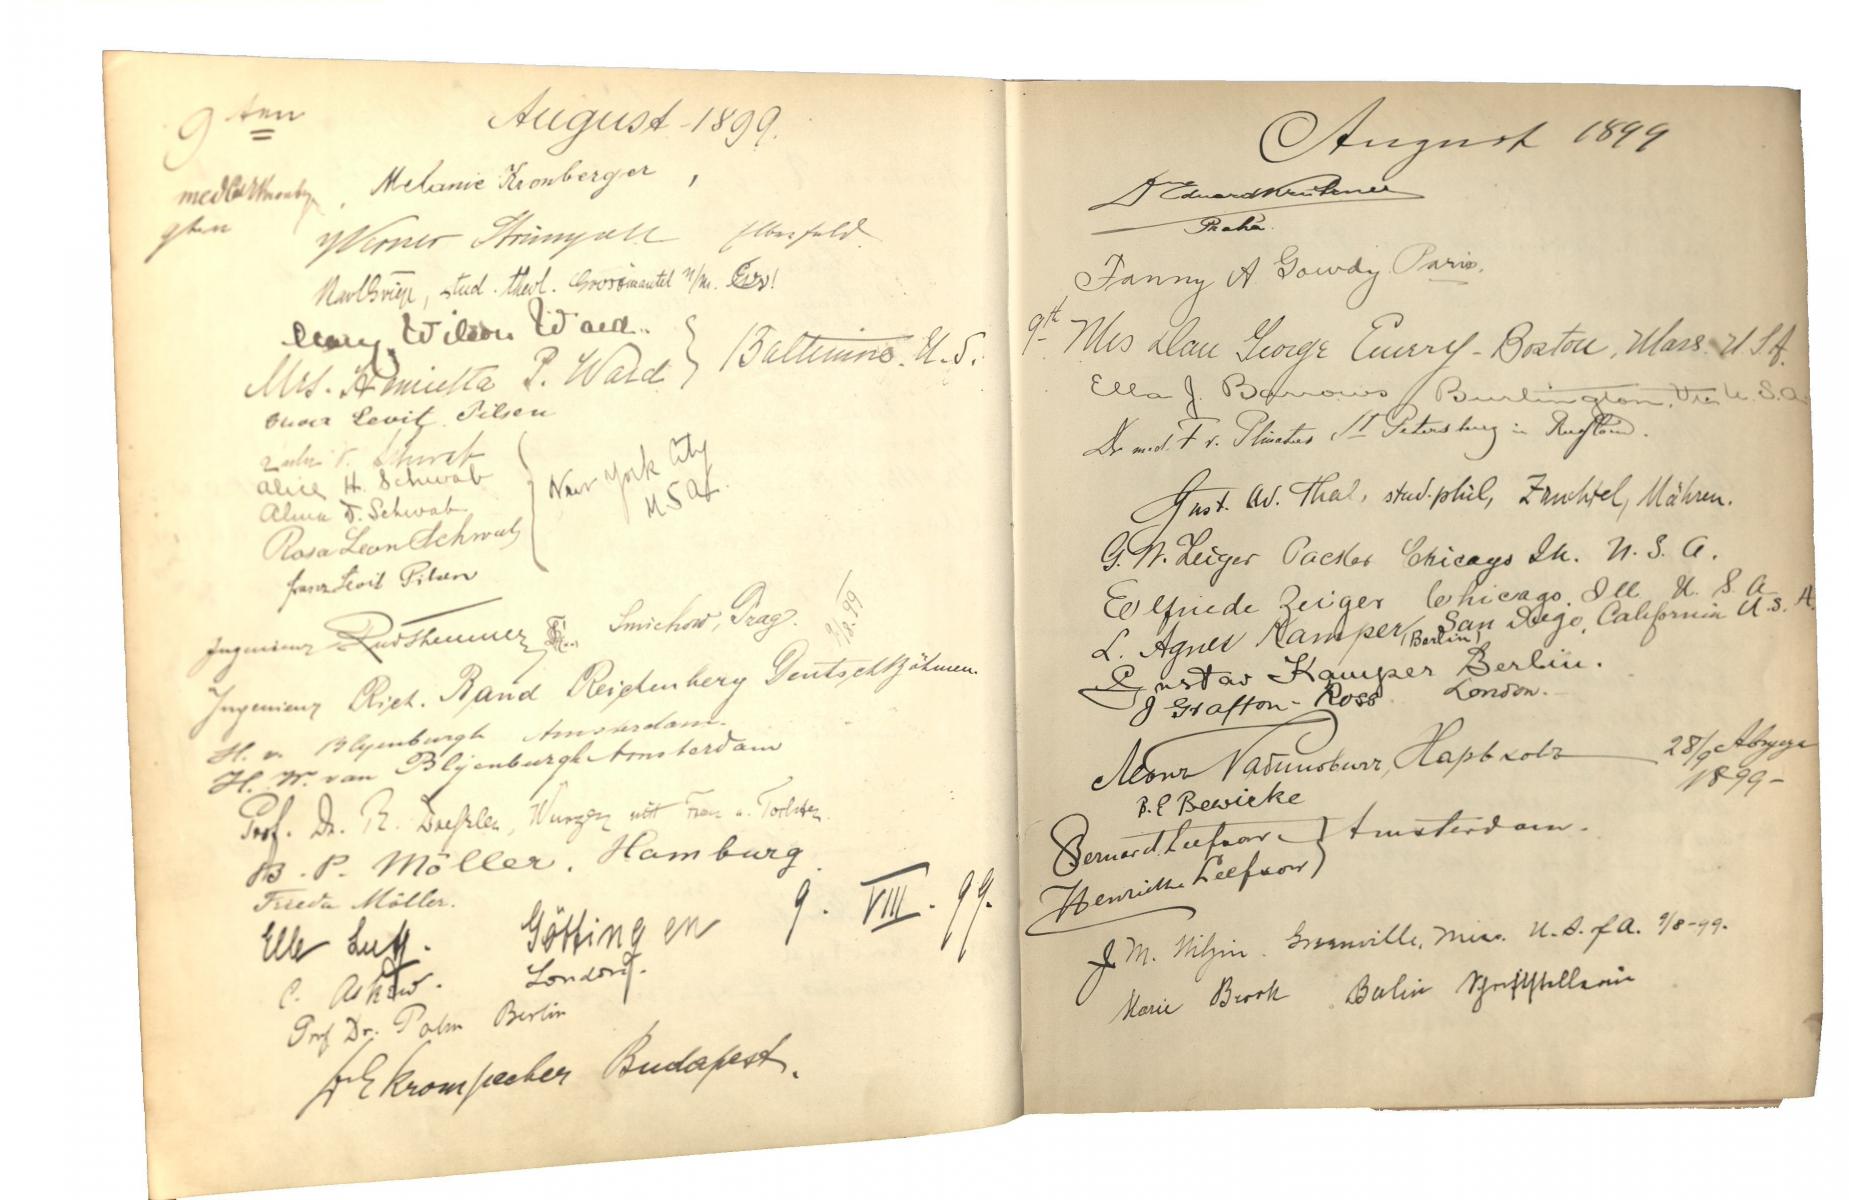 9ten August - 1899.
Melanie Kronberger,
9ten
Werner Elberfeld
stud. theol.
Mary Wilson Ward
Mrs. Henrietta P. Ward } Baltimore. U.S.
Levit Pilsen
Schwab
Alice H. Schwab
Alma F. Schwab
New York City
U S of A.
Rosa Leon Schwab
Franz Levit Pilsen
Ingenieur Smichow, Prag. 9/8.99
Ingenieur Rich. Rand Reichenberg Deutschböhmen.
H. v. Blijenburgh Amsterdam.
H. W. van Blijenburgh Amsterdam
Prof. Dr. R. Dreßler, Wurzen mit Frau u. Tochter.
B. P. Möller. Hamburg.
Frieda Möller.
Elle Göttingen 9. VIII. 99.
C. Askew. London.
Prof Dr. Palm Berlin
Dr E Krompecher Budapest.
August 1899
Praha.
Fanny A Gowdy Paris.
9th Mrs Dan George Emery - Boston, Mass. U.S.A.
Ella J. Barrows Burlington, U.S.A.
Dr med. F v. St Petersburg in Rußland.
Gust. Ad. Thal, stud. phil, Zauchtel, Mähren.
G. W. Zeiger Packer Chicago Ill. U. S. A.
Elfriede Zeiger Chicago, Ill U. S. A
L. Agnes Kamper, (Berlin) San Diego, California U.S.A.
Gustav Kamper Berlin.
J Grafton-Ross London.
Харьковъ 28/9 1899-
B. E Bewicke
Bernard Leefson
Henriette Leefson } Amsterdam.
J. M. Greenville, Miss. U.S. of A. 9/8-99.
Marie Brook Berlin Schriftstellerin